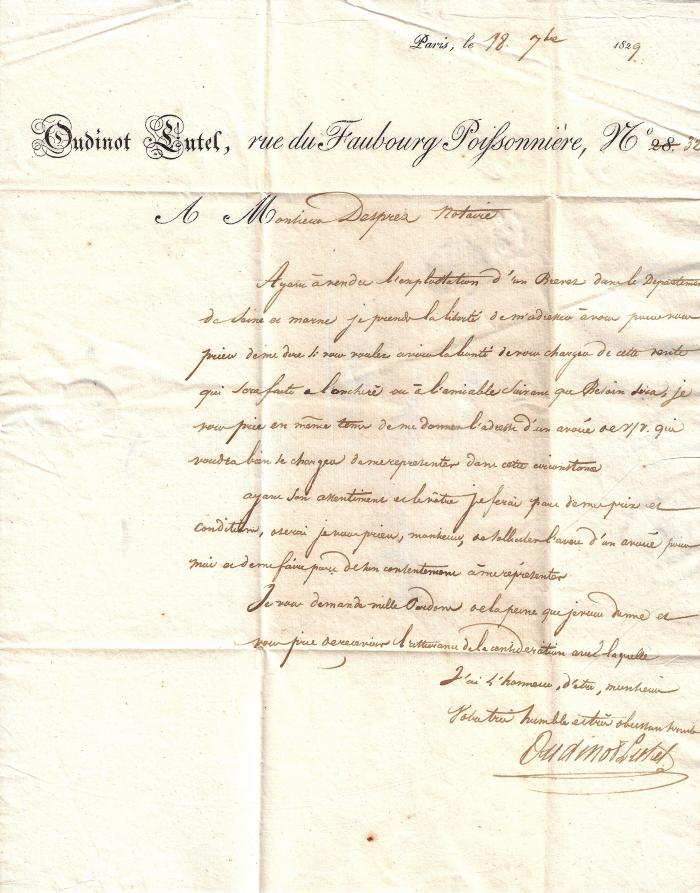 Paris, le 18. 7bre 1829
Oudinot Lutel, rue du Faubourg Poissonnière, N° 28. 32
A Monsieur Desprez Notaire
Ayant à vendre l'exploitation d'un Brevet dans le Departemen
de Seine et marne je prends la liberté de m'adresser à vous pour vous
prier de me dire si vous voulez avoir la bonté de vous charger de cette vente
qui sera faite a l'enchere ou à l'amiable suivant que Besoin sera, je
vous prie en même tems de me donner l'adresse d'un avoué de v/v. qui
voudra bien se charger de me representer dans cette circonstance
ayant son assentiment et le votre je ferai part de mes prix et
condition, oserai je vous prier, monsieur, de solliciter l'aveu d'un avoué pour
moi et de me faire part de son consentement à me représenter
Je vous demande mille Pardons de la peine que je vous donne et
vous prie de recevoir l'assurance de la considération avec laquelle
J'ai l'honneur, d'être, monsieur
Votre très humble et très obeissant servit
Oudinot Lutel